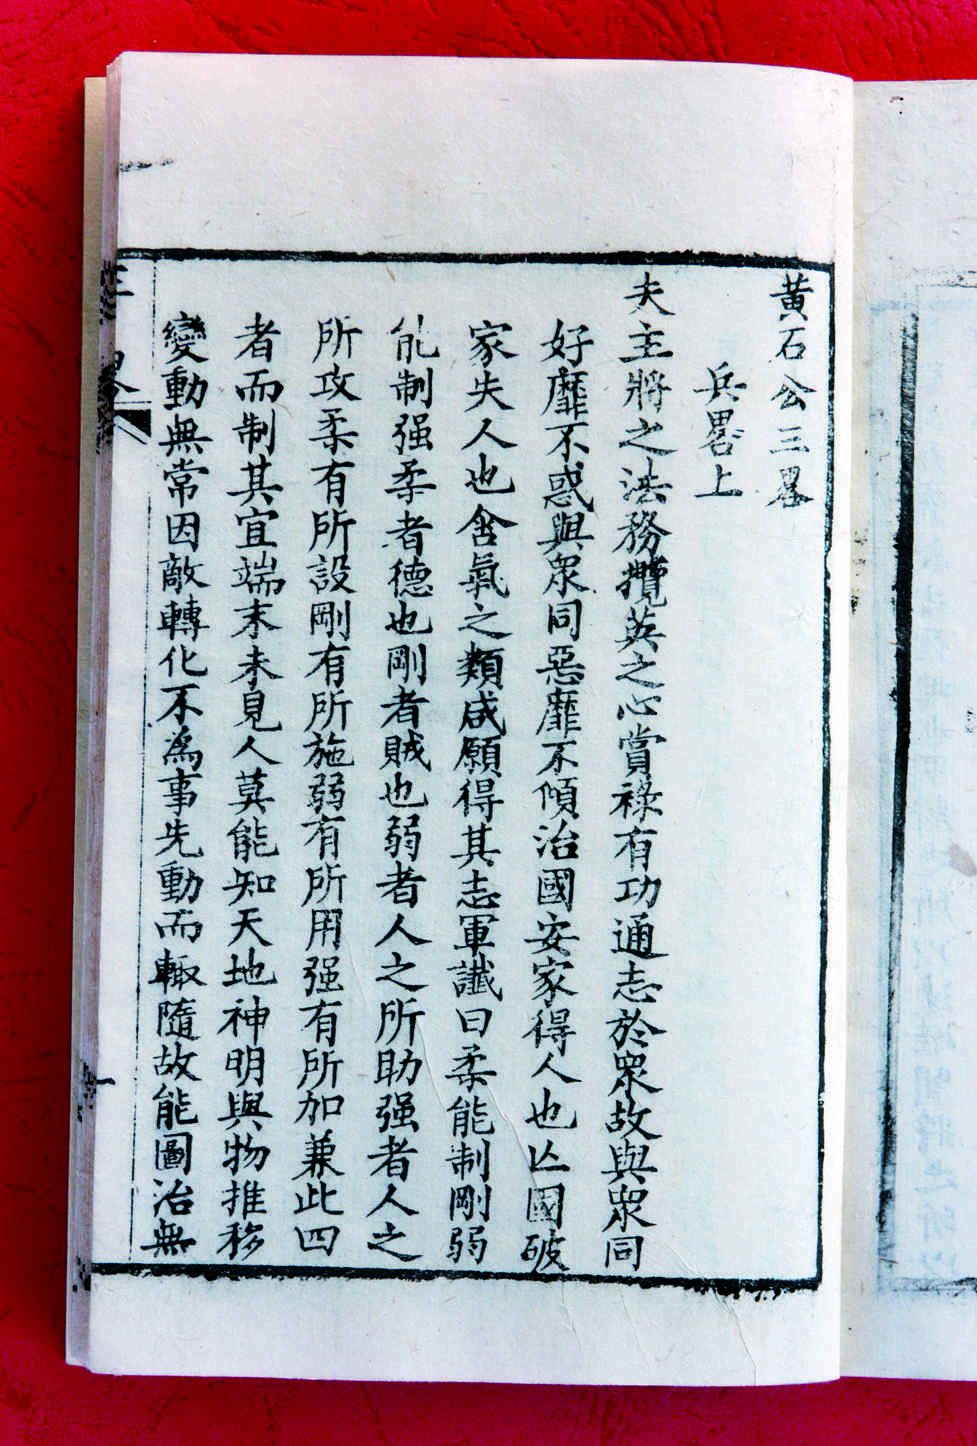 黄石公三畧
兵畧上
夫主將之法務攬英之心賞祿有功通志於衆故與衆同
好靡不惑與衆同惡靡不傾治國安家得人也亾國破
家失人也含氣之類咸願得其志軍讖曰柔能制剛弱
能制强柔者德也剛者賊也弱者人之所助强者人之
所攻柔有所設剛有所施弱有所用强有所加兼此四
者而制其宜端末未見人莫能知天地神明與物推移
變動無常因敵轉化不為事先動而輙隨故能圖治無
三畧
一